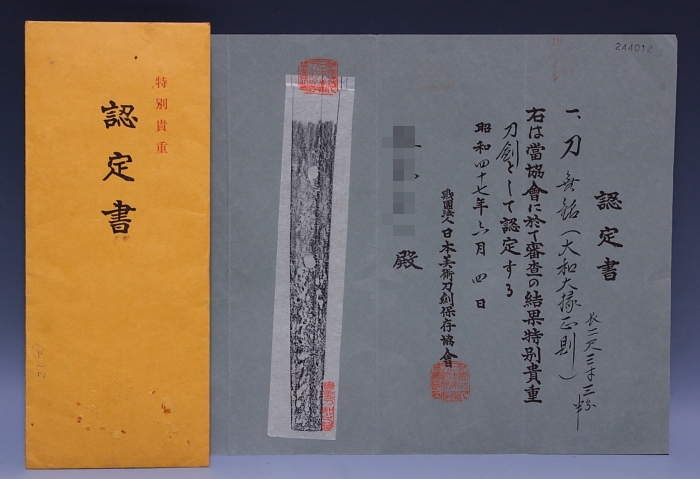 特別貴重
認定書
244012
認定書
一、刀 無銘(大和大掾正則)
長二尺三寸三分半
右は當協會に於て審査の結果特別貴重
刀劍として認定する
昭和四十七年六月四日
殿
財團法人日本美術刀剣保存協會